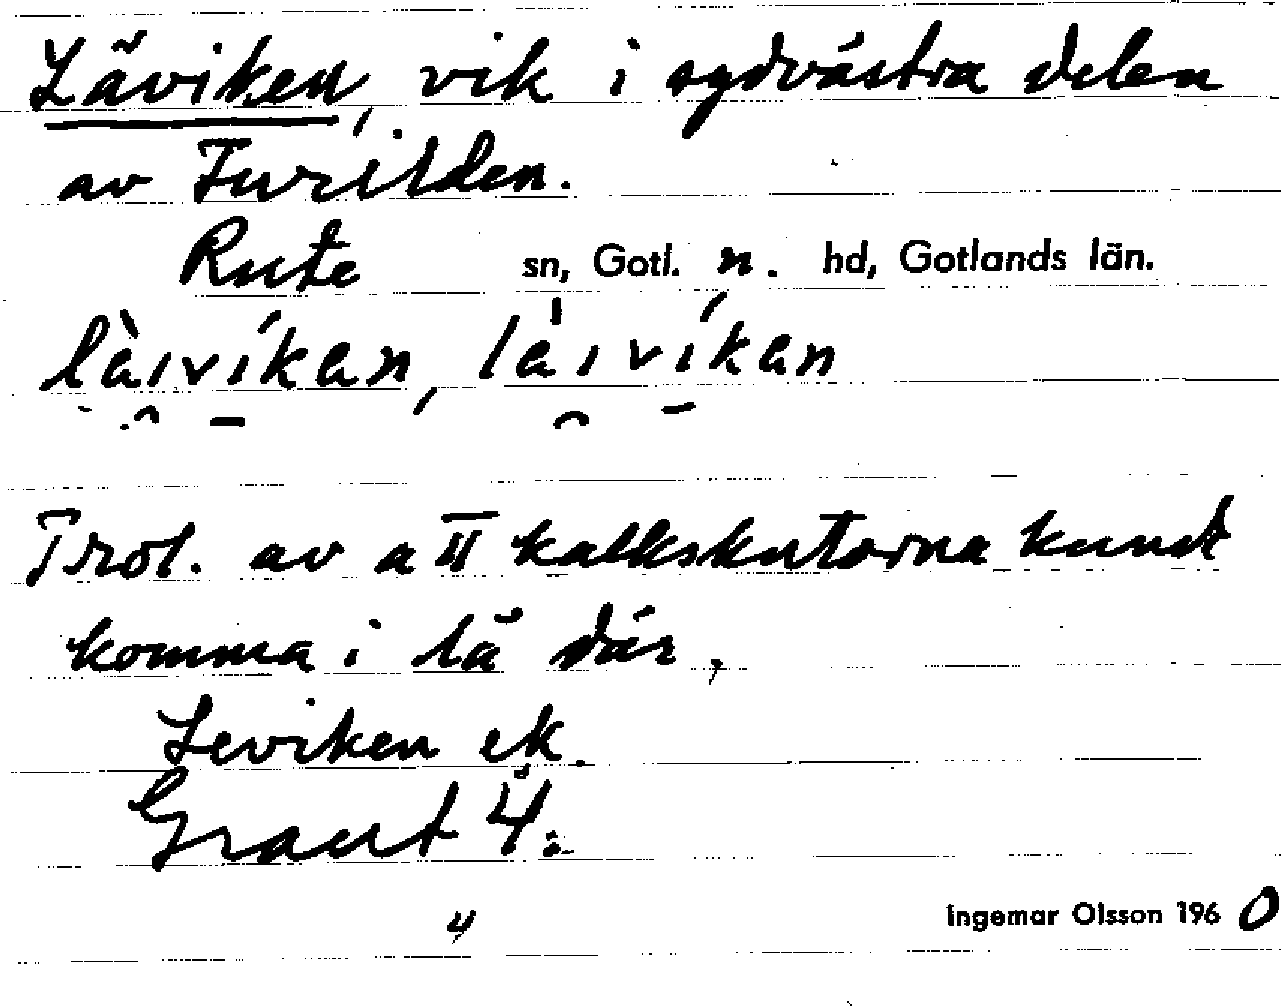 Läviken, vik i sydvästra delen
av Furilden.
Rute sn, Gotl. n. hd, Gotlands län.
làıvíkan, làıvíkan
Trol. av att kalkskutorna kund
komma i lä där,
Leviken ek.
Graut 4:
4
Ingemar Olsson 1960